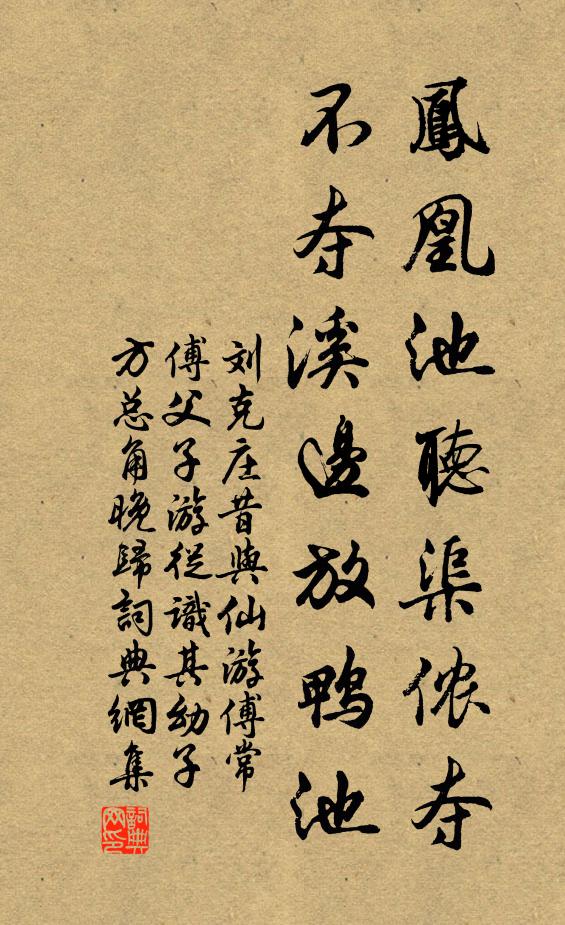 鳳凰池聽渠侬夺
不夺溪邊放鴨池
刘克庄昔與仙游傅常
傅父子游從識其幼子
方总角晚歸詞典網集
詞典网印